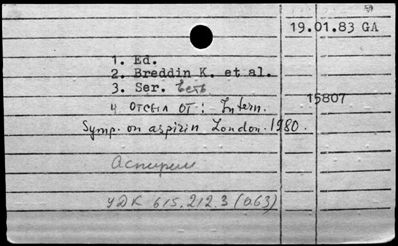 19.01.83 GA
1. Ed.
2. Breddin K. et al.
3. Ser. есть
4 отсыл от: Intern.
15807
Symp. on aspirin London. 1980.
Аспирин
УДК 615.212.3 (063)